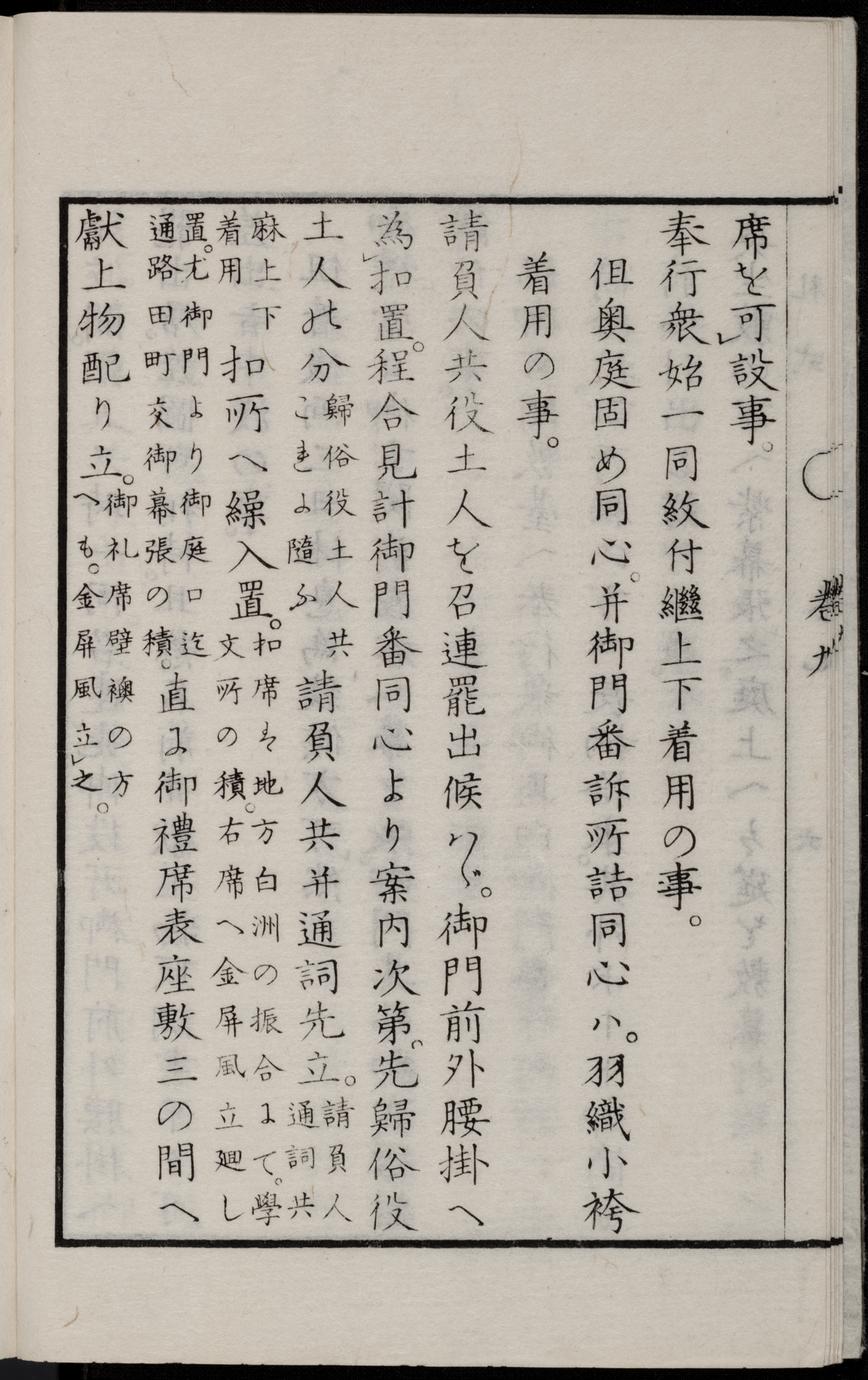 席を可㆑設事。
奉行衆始一同紋付繼上下着用の事。
但奥庭固め同心。并御門番訴所詰同心ハ。羽織小袴
着用の事。
請負人共役土人を召連罷出候ハゞ。御門前外腰掛へ
為㆑扣置。程合見計御門番同心より案内次第。先歸俗役
土人の分
歸俗役土人共
これよ隨ふ
請負人共并通詞先立。
請負人
通詞共
麻上下
着用
扣所へ繰入置。
扣席は地方白洲の振合よて。學
文所の積。右席へ金屏風立廻し
置。尤御門より御庭口迄
通路田町交御幕張の積。
直よ御禮席表座敷三の間へ
獻上物配り立。
御礼席壁襖の方
へも。金屏風立㆑之。
巻九